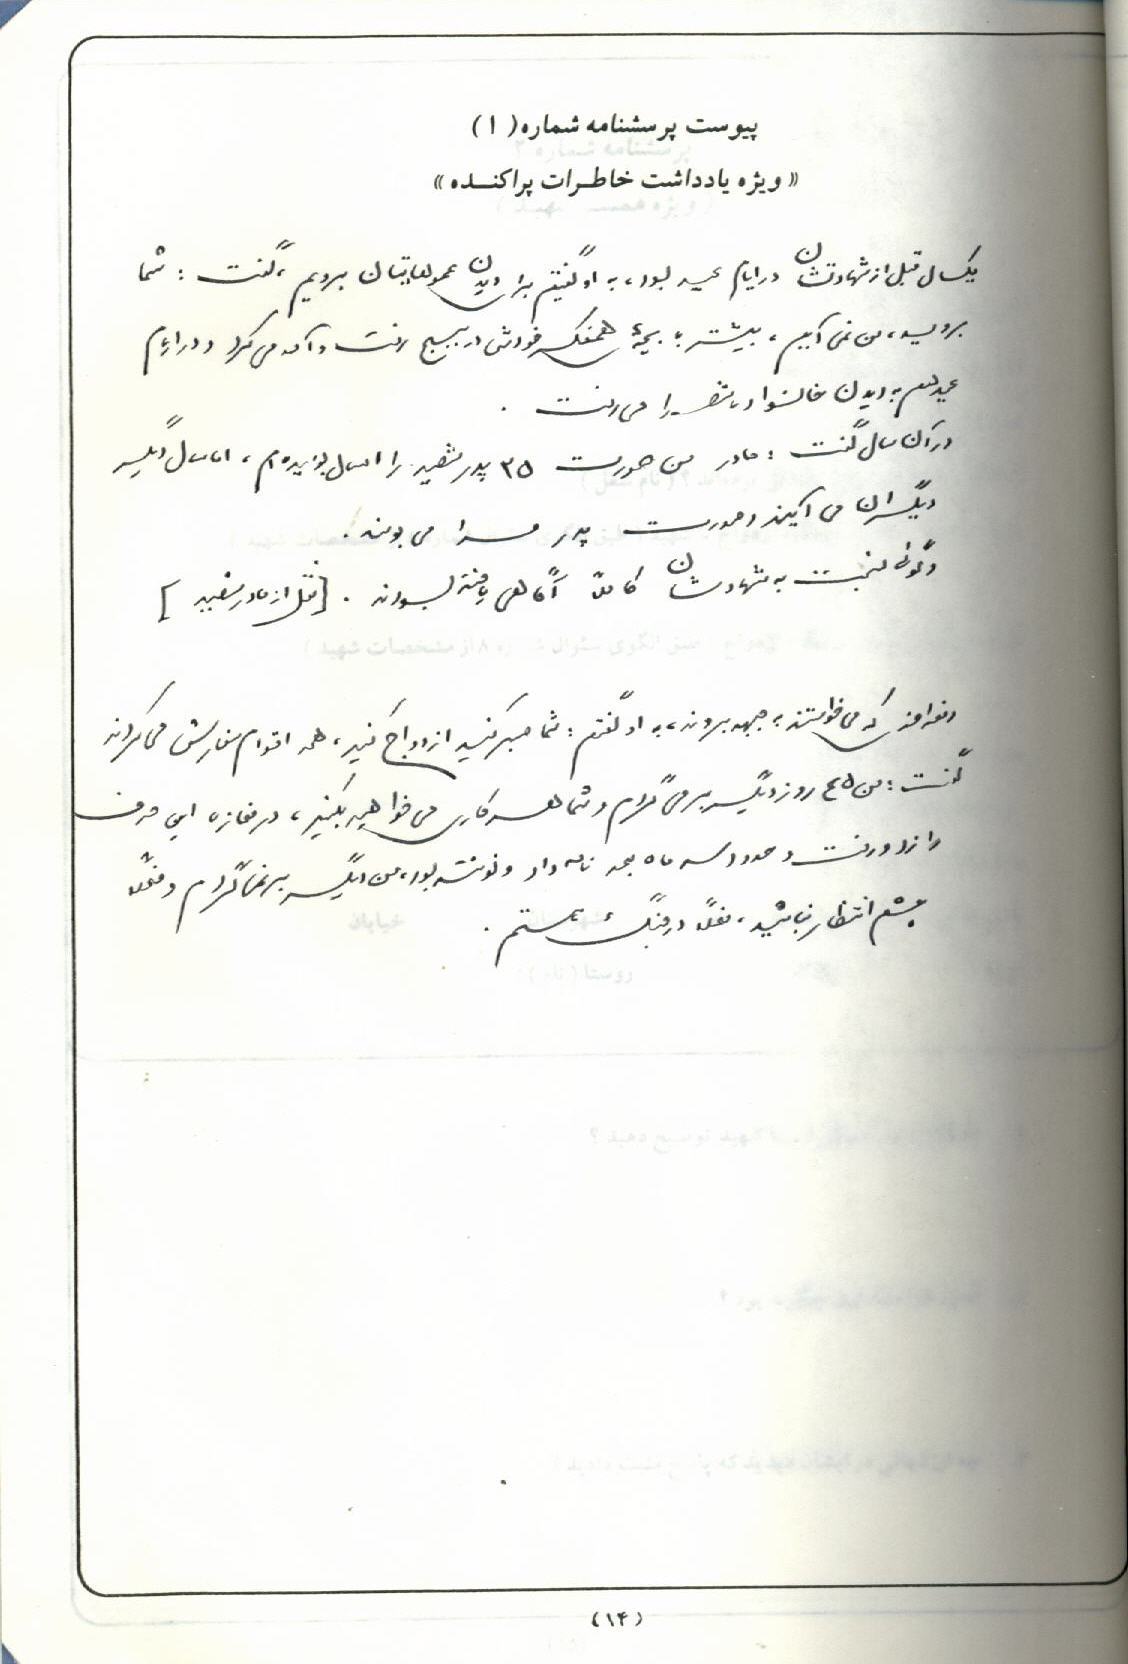 پیوست پرسشنامه شماره (۱)
« ویژه یادداشت خاطرات پراکنده »
یکسال قبل از شهادتشان در ایام عید بود، به او گفتیم برای دیدن عموهایتان برویم، گفت : شما
بروید، من نمی آیم، بیشتر با بچه های همفکر خودش در بسیج رفت و آمد می کرد و در ایام
عید هم به دیدن خانواده شهدا می رفت .
در آن سال گفت : مادر من صورت ۳۵ پدر شهید را امسال بوسیده ام ، اما سال دیگر
دیگران می آیند و صورت پدر مرا می بوسند .
و گوئی نسبت به شهادتشان کاملاً آگاهی یافته بودند . [نقل از مادر شهید ]
دفعه آخر که می خواستند به جبهه بروند، به او گفتم : شما صبر کنید ازدواج کنید، همه اقوام سفارش می کردند
گفت : من ۴۵ روز دیگر بر می گردم و شما هر کاری می خواهید بکنید، در مغازه این حرف
را زد و رفت و حدود سه ماه بعد نامه داد و نوشته بود، من دیگر بر نمی گردم و فعلاً
چشم انتظار نباشید، فعلاً در جنگ هستم .
(۱۴)